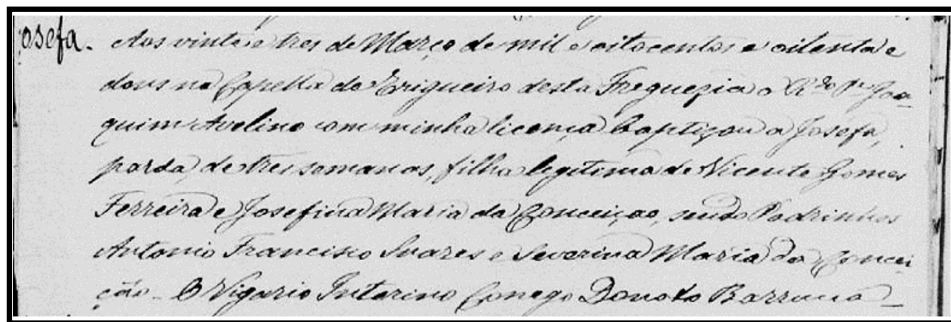 Josefa.
Aos vinte e tres de Março de mil e oitocentos e oitenta e
dous na Capella do Trigueiro desta Freguezia o R.do P.e Joa-
quim Avelino com minha licença baptizou a Josefa,
parda, de tres semanas, filha legitima de Vicente Gomes
Ferreira e Josefina Maria da Conceição, sendo Padrinhos
Antonio Francisco Soares e Severina Maria da Concei-
ção. O Vigario Interino Conego Donato Barrucô